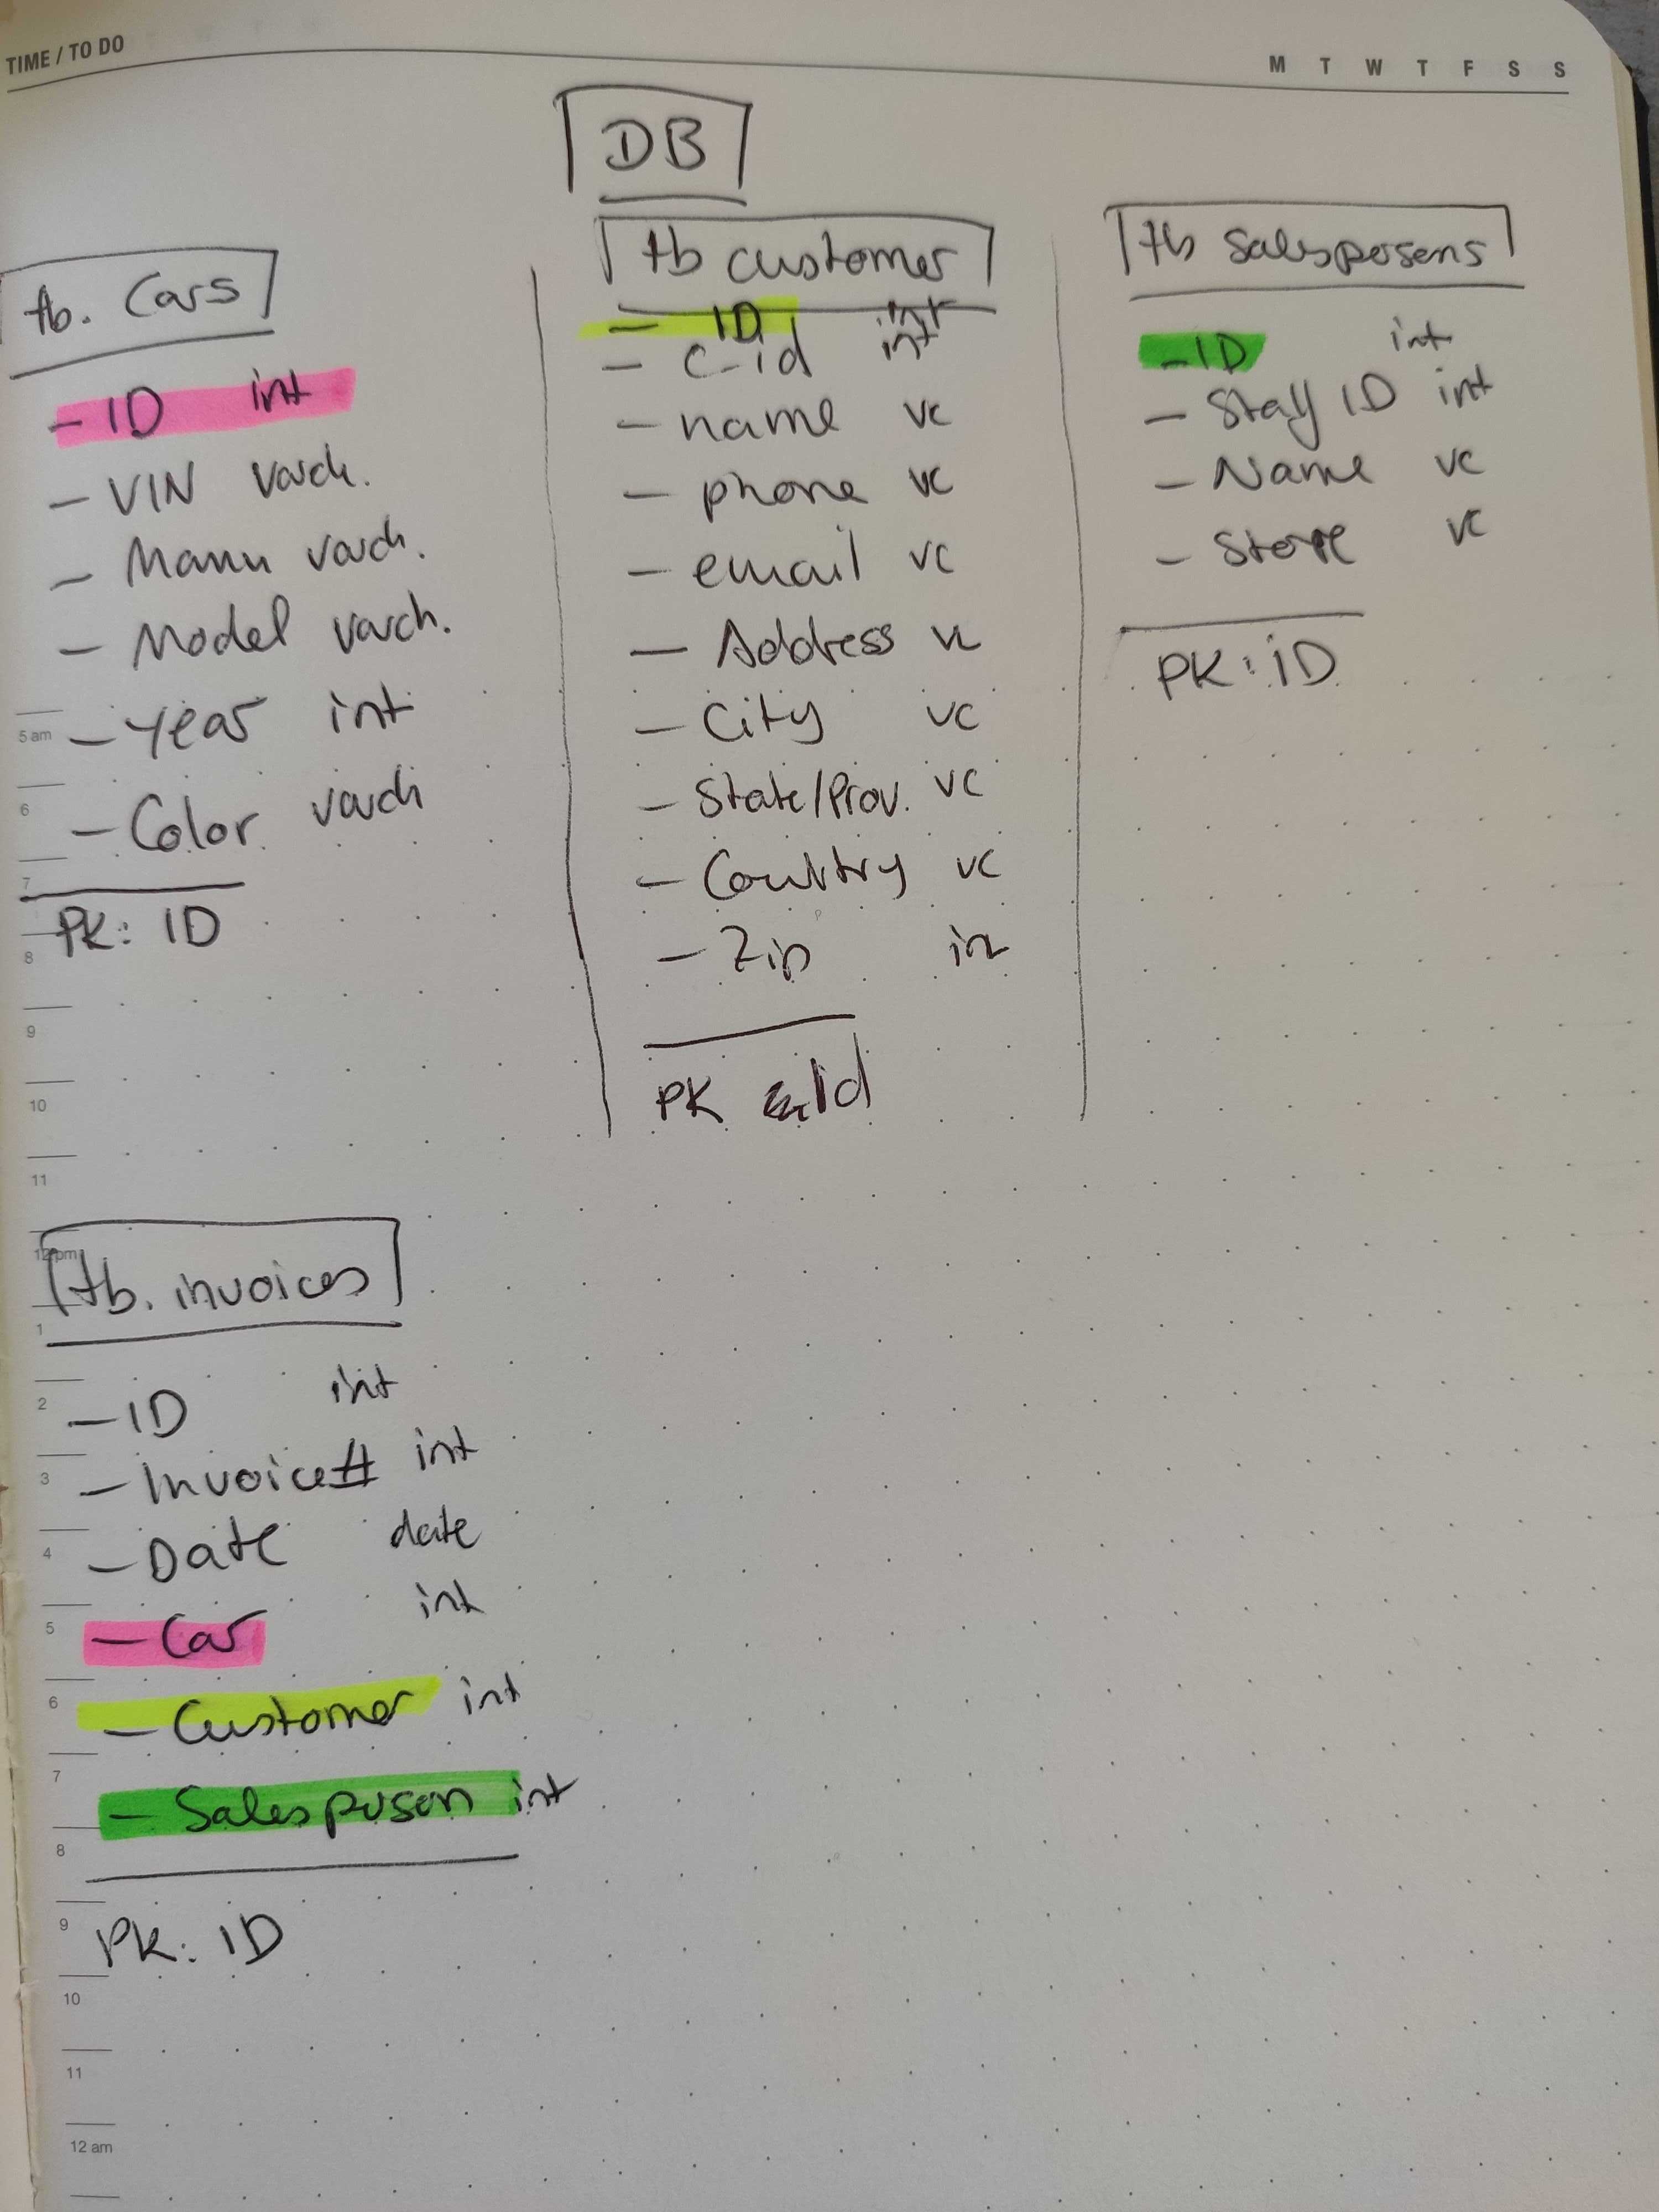 TIME / TO DO
M T W T F S S
DB
tb. Cars
- ID int
- VIN varch.
- Manu varch.
- Model varch.
- Year int
- Color varch
PK: ID
tb customer
- ID int
- c-id int
- name vc
- phone vc
- email vc
- Address vc
- City vc
- State/Prov. vc
- Country vc
- Zip int
PK id
tb salespersons
- ID int
- Staff ID int
- Name vc
- Store vc
PK: ID
tb. invoices
- ID int
- Invoice# int
- Date date
- Car int
- Customer int
- Salesperson int
PK: ID
5 am
6
7
8
9
10
11
12 pm
1
2
3
4
5
6
7
8
9
10
11
12 am